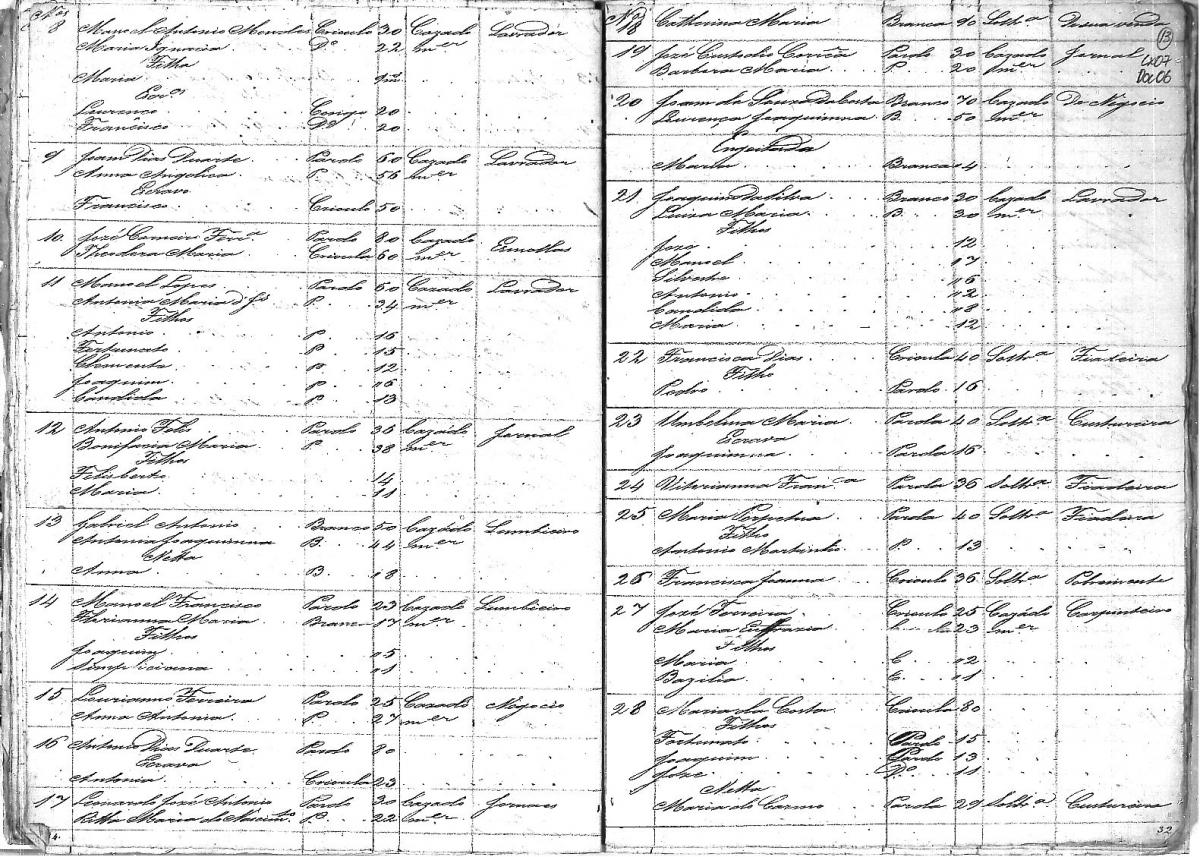 Nos
8 Manoel Antonio Mendes Crioulo 30 Cazado Lavrador
Maria Ignacia Do 22 mer
Filha
Maria
Escos
Lourenco Congo 20
Francisco Do 20
9 Joam Dias Duarte Pardo 60 Cazado Lavrador
Anna Angelica P. 56 mer
Escravo
Francisco Crioulo 50
10 José Carneiro Ferra Pardo 80 Cazado Esmollas
Theodora Maria Crioula 60
11 Manoel Lopes Pardo 60 Cazado Lavrador
Antonia Maria d Js P. 34 mer
Filhos
Antonio P 16
Fortunato P 15
Clemente P 12
Joaquim P 06
Candida P 13
12 Antonio Felis Pardo 36 Cazado Jornal
Bonifacia Maria P. 38 mer
Filhos
Felisberto 14
Maria 11
13 Gabriel Antonio Branco 50 Cazado
Antonia Joaquinna B. 44 mer
Netta
Anna B 08
14 Manoel Francisco Pardo 23 Cazado
Florianna Maria Branca 17 mer
Filhos
Joaquim 05
Simpliciana 01
15 Laurianno Ferreira Pardo 25 Cazado Négocio
Anna Antonia P 27 mer
16 Antonio Dias Duarte Pardo 80
Escravo
Antonia Crioula 23
17 Leonardo José Antonio Pardo 30 Cazado Jornaes
Ritta Maria do Nascimto P 22 mer
4.
No
18 Catherina Maria Branca 90 Soltra De sua venda
13
Cx07
Doc06
19 José Custodio Corrêa Pardo 30 Cazado Jornal
Barbara Maria P. 20 mer
20 Joam da Souza da Costa Branco 70 Cazado De Négocio
Lourença Joaquinna B. 50 mer
Engeitada
Maria Branca 04
21 Joaquim da Silva Branco 30 Cazado Lavrador
Luiza Maria B. 30 mer
Filhos
Joze 12
Manoel 07
Silvestre 06
Antonio 02
Candida 08
Maria 12
22 Francisca Dias Crioula 40 Soltra Fiadeira
Filho
Pedro Pardo 16
23 Umbelina Maria Parda 40 Soltra Custureira
Escrava
Joaquinna Parda 16
24 Vitorianna Franca Parda 36 Soltra Fiadeira
25 Maria Perpetua Parda 40 Soltra Fiadeira
Filho
Antonio Martinho P. 13
26 Francisca Joanna Crioula 36 Soltra
27 José Ferreira Crioulo 25 Cazádo Carpinteiro
Maria Euffrazia 23 mer
Filhos
Maria C 02
Bazilia C 01
28 Maria da Costa Crioula 80
Filhos
Fortunato Pardo 15
Joaquim Pardo 13
Joze Do 11
Netta
Maria do Carmo Parda 29 Soltra Custureira
32